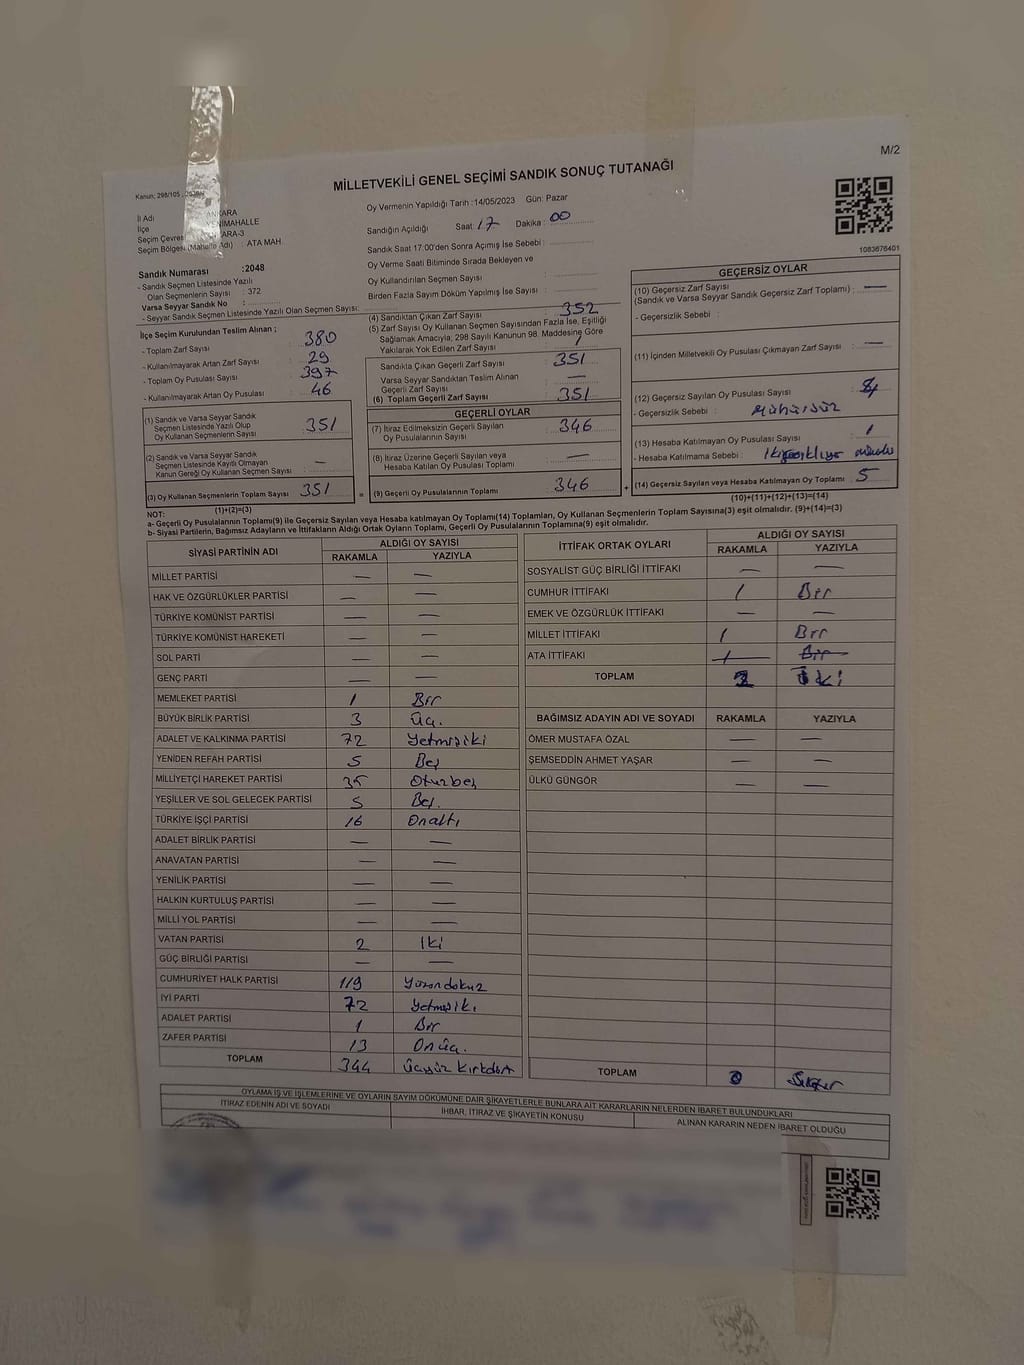 M/2
MİLLETVEKİLİ GENEL SEÇİMİ SANDIK SONUÇ TUTANAĞI
Kanun: 298/105
Oy Vermenin Yapıldığı Tarih :14/05/2023 Gün: Pazar
İl Adı ANKARA
İlçe YENİMAHALLE
Seçim Çevresi ANKARA-3
Seçim Bölgesi (Mahalle Adı) : ATA MAH.
Sandığın Açıldığı Saat : 17 Dakika : 00
Sandık Saat 17:00'den Sonra Açılmış İse Sebebi :
Oy Verme Saati Bitiminde Sırada Bekleyen ve
Oy Kullandırılan Seçmen Sayısı :
Birden Fazla Sayım Döküm Yapılmış İse Sayısı :
1083676401
Sandık Numarası :2048
- Sandık Seçmen Listesinde Yazılı
Olan Seçmenlerin Sayısı : 372
Varsa Seyyar Sandık No :
- Seyyar Sandık Seçmen Listesinde Yazılı Olan Seçmen Sayısı:
İlçe Seçim Kurulundan Teslim Alınan ;
- Toplam Zarf Sayısı : 380
- Kullanılmayarak Artan Zarf Sayısı : 29
- Toplam Oy Pusulası Sayısı : 397
- Kullanılmayarak Artan Oy Pusulası : 46
(1) Sandık ve Varsa Seyyar Sandık
Seçmen Listesinde Yazılı Olup
Oy Kullanan Seçmenlerin Sayısı : 351
(2) Sandık ve Varsa Seyyar Sandık
Seçmen Listesinde Kayıtlı Olmayan
Kanun Gereği Oy Kullanan Seçmen Sayısı : —
(3) Oy Kullanan Seçmenlerin Toplam Sayısı : 351
(1)+(2)=(3)
(4) Sandıktan Çıkan Zarf Sayısı : 352
(5) Zarf Sayısı Oy Kullanan Seçmen Sayısından Fazla İse, Eşitliği
Sağlamak Amacıyla; 298 Sayılı Kanunun 98. Maddesine Göre
Yakılarak Yok Edilen Zarf Sayısı : 1
Sandıkta Çıkan Geçerli Zarf Sayısı : 351
Varsa Seyyar Sandıktan Teslim Alınan
Geçerli Zarf Sayısı : —
(6) Toplam Geçerli Zarf Sayısı : 351
GEÇERLİ OYLAR
(7) İtiraz Edilmeksizin Geçerli Sayılan
Oy Pusulalarının Sayısı : 346
(8) İtiraz Üzerine Geçerli Sayılan veya
Hesaba Katılan Oy Pusulası Toplamı : —
= (9) Geçerli Oy Pusulalarının Toplamı : 346
GEÇERSİZ OYLAR
(10) Geçersiz Zarf Sayısı
(Sandık ve Varsa Seyyar Sandık Geçersiz Zarf Toplamı) : —
- Geçersizlik Sebebi :
(11) İçinden Milletvekili Oy Pusulası Çıkmayan Zarf Sayısı : —
(12) Geçersiz Sayılan Oy Pusulası Sayısı : 4
- Geçersizlik Sebebi : Mühürsüz
(13) Hesaba Katılmayan Oy Pusulası Sayısı : 1
- Hesaba Katılmama Sebebi :
+ (14) Geçersiz Sayılan veya Hesaba Katılmayan Oy Toplamı : 5
(10)+(11)+(12)+(13)=(14)
NOT:
a- Geçerli Oy Pusulalarının Toplamı(9) ile Geçersiz Sayılan veya Hesaba katılmayan Oy Toplamı(14) Toplamları, Oy Kullanan Seçmenlerin Toplam Sayısına(3) eşit olmalıdır. (9)+(14)=(3)
b- Siyasi Partilerin, Bağımsız Adayların ve İttifakların Aldığı Ortak Oyların Toplamı, Geçerli Oy Pusulalarının Toplamına(9) eşit olmalıdır.
SİYASİ PARTİNİN ADI ALDIĞI OY SAYISI
RAKAMLA YAZIYLA
MİLLET PARTİSİ — —
HAK VE ÖZGÜRLÜKLER PARTİSİ — —
TÜRKİYE KOMÜNİST PARTİSİ — —
TÜRKİYE KOMÜNİST HAREKETİ — —
SOL PARTİ — —
GENÇ PARTİ — —
MEMLEKET PARTİSİ 1 Bir
BÜYÜK BİRLİK PARTİSİ 3 Üç.
ADALET VE KALKINMA PARTİSİ 72 Yetmişiki
YENİDEN REFAH PARTİSİ 5 Beş
MİLLİYETÇİ HAREKET PARTİSİ 35 Otuzbeş
YEŞİLLER VE SOL GELECEK PARTİSİ 5 Beş.
TÜRKİYE İŞÇİ PARTİSİ 16 Onaltı
ADALET BİRLİK PARTİSİ — —
ANAVATAN PARTİSİ — —
YENİLİK PARTİSİ — —
HALKIN KURTULUŞ PARTİSİ — —
MİLLİ YOL PARTİSİ — —
VATAN PARTİSİ 2 İki
GÜÇ BİRLİĞİ PARTİSİ — —
CUMHURİYET HALK PARTİSİ 119 Yüzondokuz
İYİ PARTİ 72 Yetmişiki
ADALET PARTİSİ 1 Bir
ZAFER PARTİSİ 13 Onüç.
TOPLAM 344 Üçyüz Kırkdört
İTTİFAK ORTAK OYLARI ALDIĞI OY SAYISI
RAKAMLA YAZIYLA
SOSYALİST GÜÇ BİRLİĞİ İTTİFAKI — —
CUMHUR İTTİFAKI 1 Bir
EMEK VE ÖZGÜRLÜK İTTİFAKI — —
MİLLET İTTİFAKI 1 Bir
ATA İTTİFAKI 1 Bir
TOPLAM 2 İki
BAĞIMSIZ ADAYIN ADI VE SOYADI RAKAMLA YAZIYLA
ÖMER MUSTAFA ÖZAL — —
ŞEMSEDDİN AHMET YAŞAR — —
ÜLKÜ GÜNGÖR — —
TOPLAM 0 Sıfır
OYLAMA İŞ VE İŞLEMLERİNE VE OYLARIN SAYIM DÖKÜMÜNE DAİR ŞİKAYETLERLE BUNLARA AİT KARARLARIN NELERDEN İBARET BULUNDUKLARI
İTİRAZ EDENİN ADI VE SOYADI İHBAR, İTİRAZ VE ŞİKAYETİN KONUSU ALINAN KARARIN NEDEN İBARET OLDUĞU